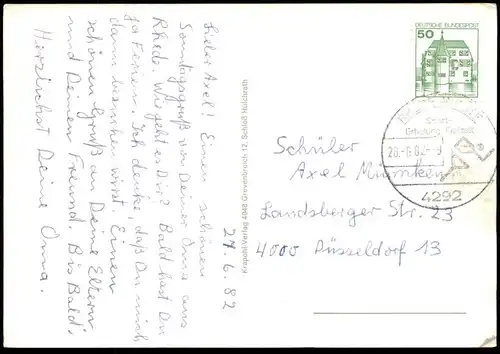 27.6.82
Lieber Axel! Einen schönen
Sonntagsgruß von Deiner Oma aus
Rhede. Wie geht es Dir? Bald hast Du
ja Ferien. Ich denke, daß Du mich
dann besuchen wirst. Einen
schönen Gruß an Deine Eltern
und Deinen Freund. Bis Bald!
Herzlichst Deine Oma.
Krapohl-Verlag 4048 Grevenbroich 12, Schloß Hülchrath
50
DEUTSCHE BUNDESPOST
Sport
Erholung Freizeit
28.-6.82-
4292
Schüler
Axel
Landsberger Str. 23
4000 Düsseldorf 13